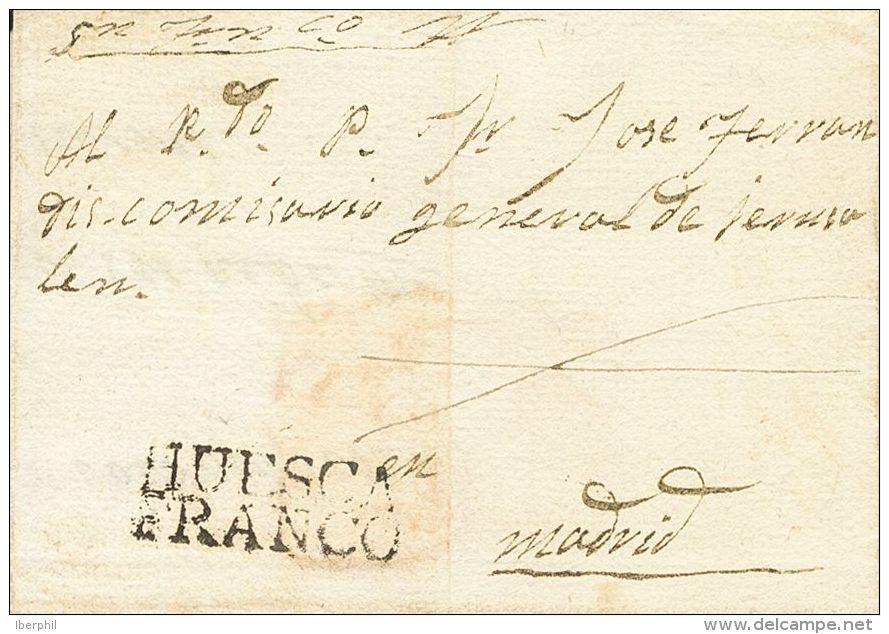 Al R.do P. Fr Jose Ferran
dis-comisario general de jerusa
len.
en
madrid
HUESCA
FRANCO
Iberphil
www.delcampe.net